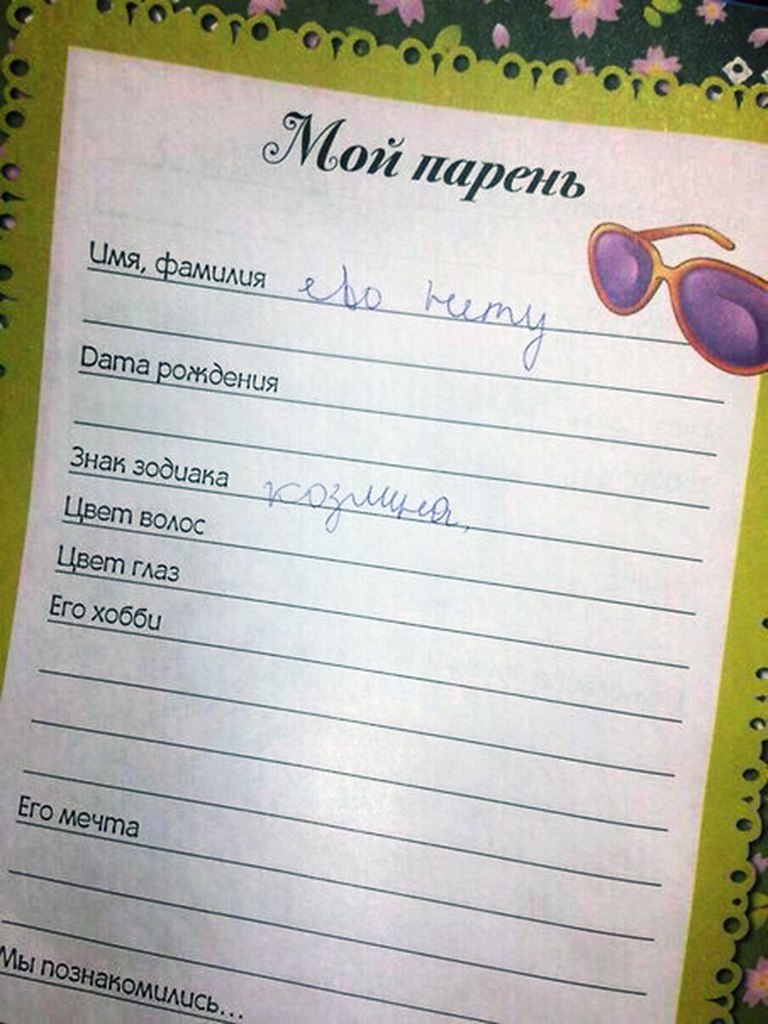 Мой парень
Имя, фамилия ево нету
Дата рождения
Знак зодиака козлина,
Цвет волос
Цвет глаз
Его хобби
Его мечта
Мы познакомились...